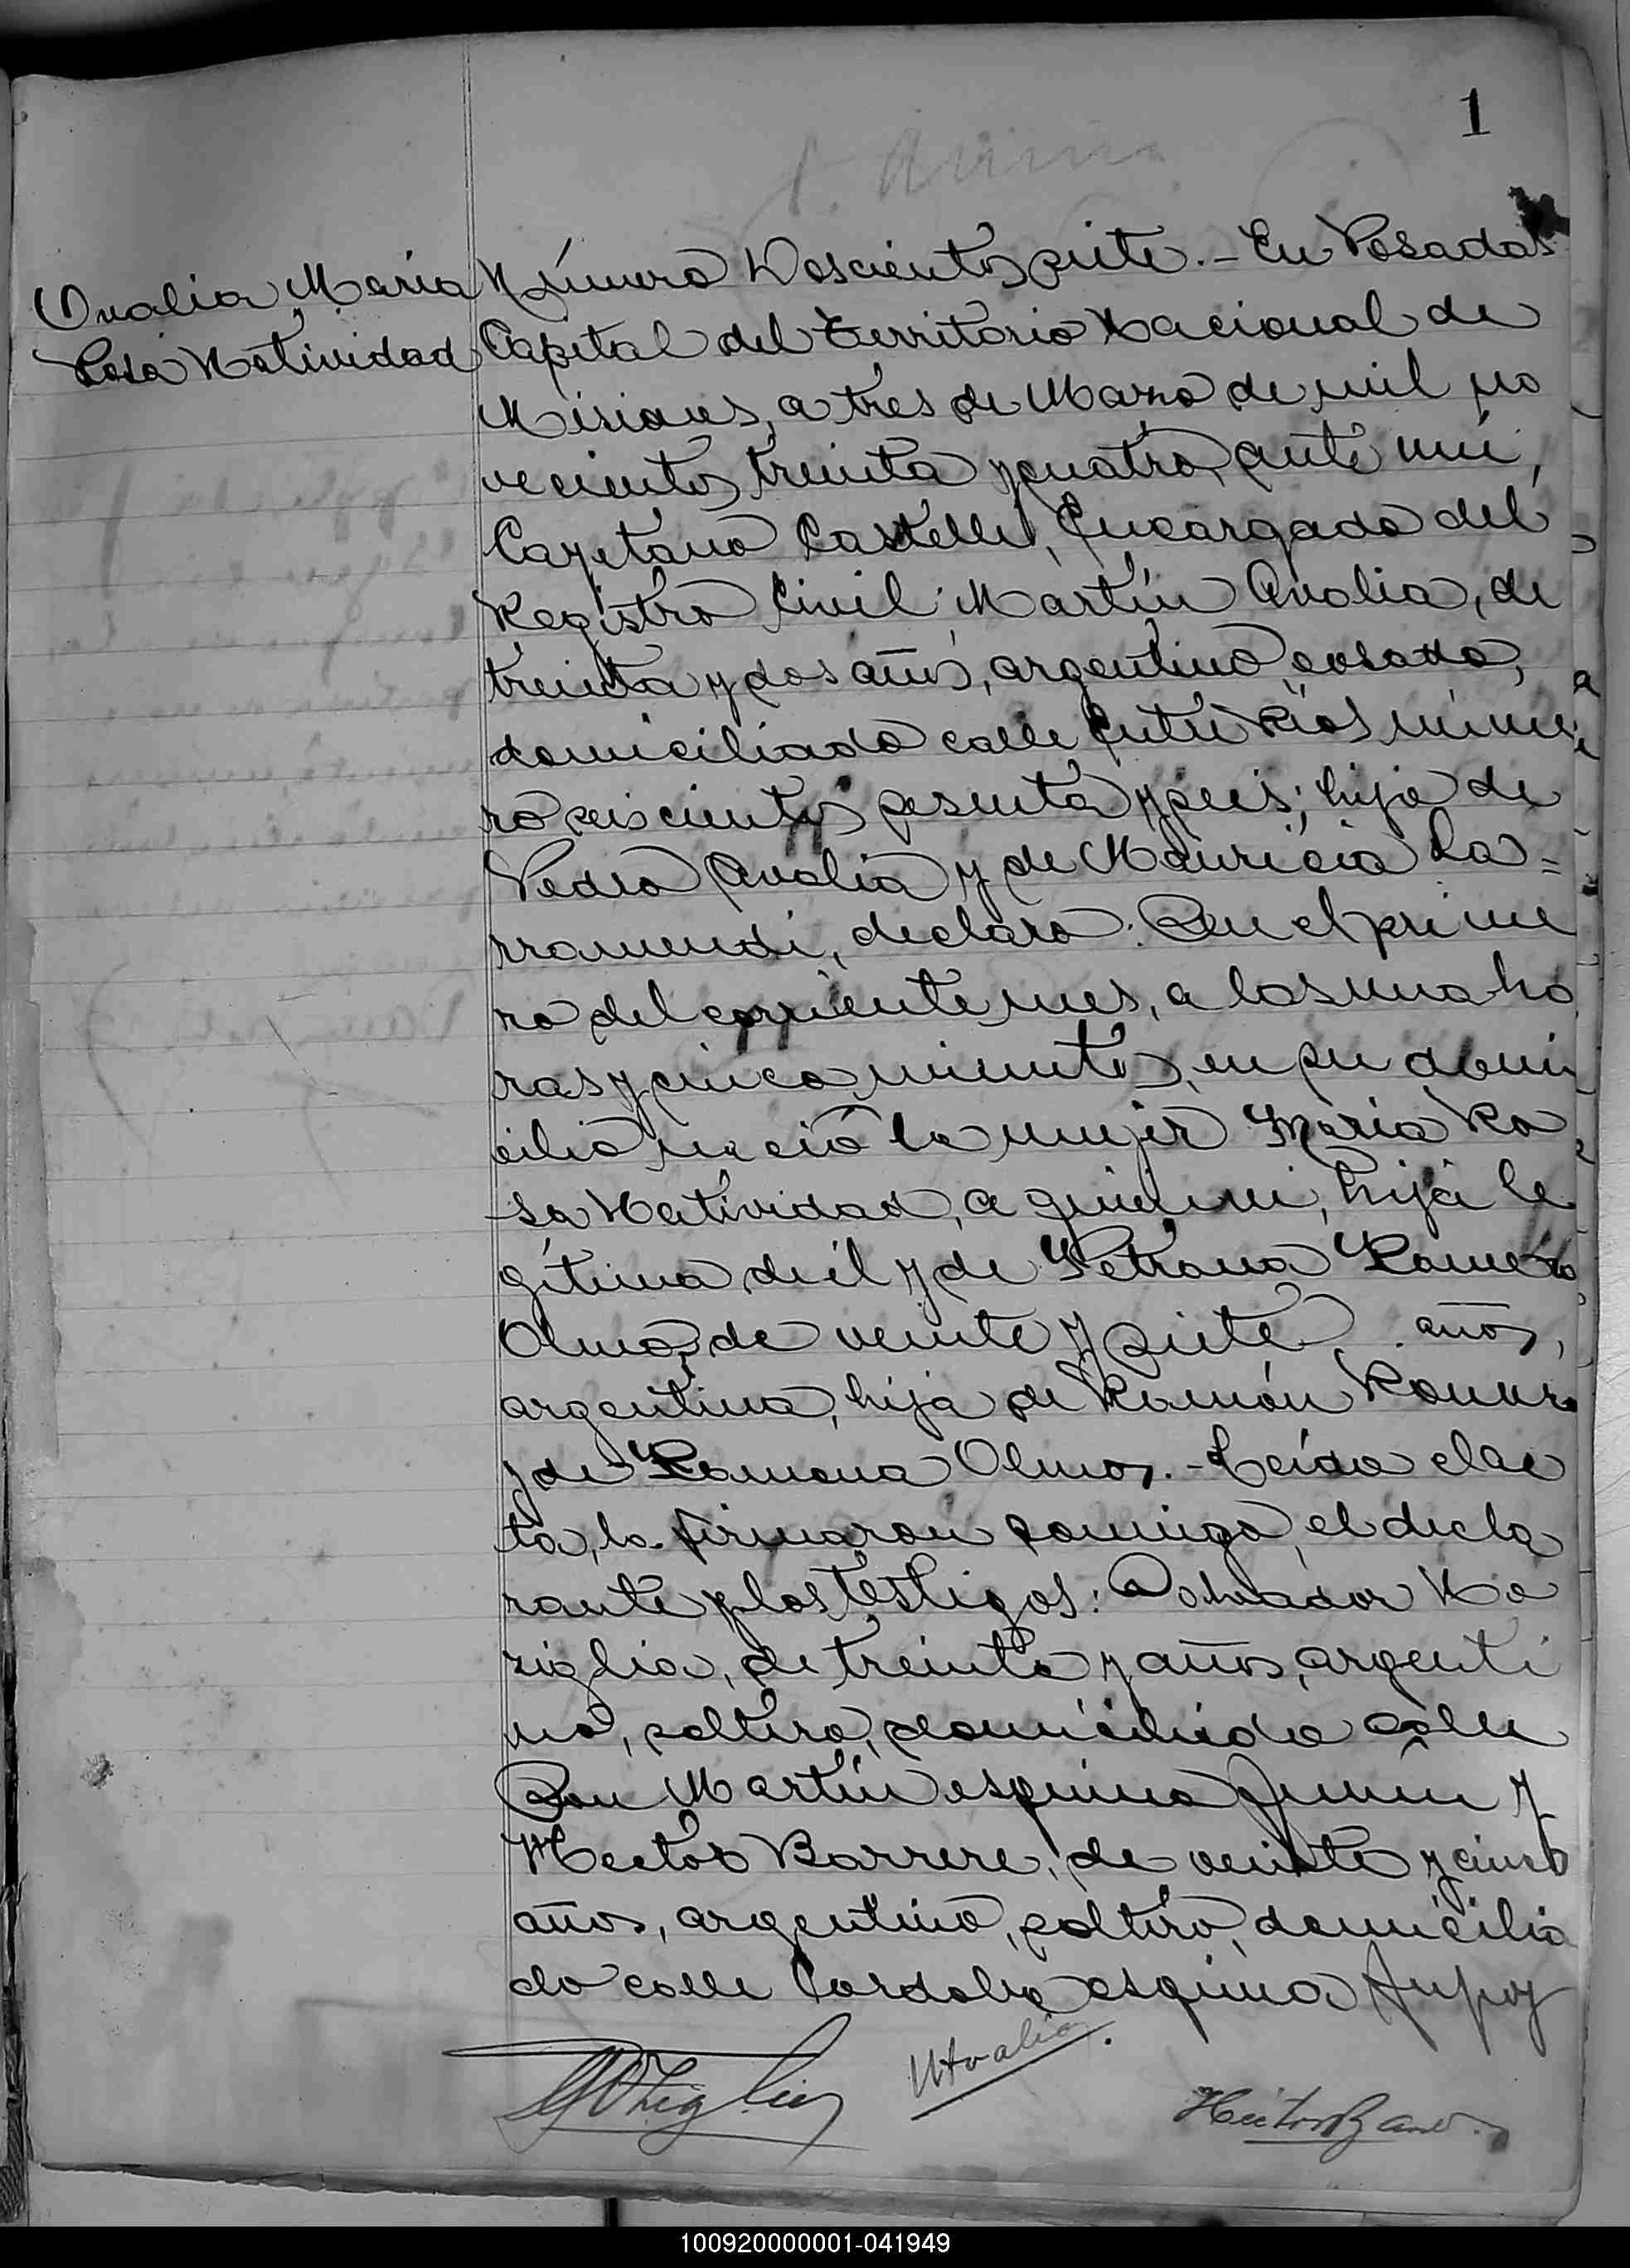 1
Ovalia María
Rosa Natividad
Número Doscientos siete.- En Posadas
Capital del Territorio Nacional de
Misiones, a tres de Marzo de mil no
vecientos treinta y cuatro, ante mí,
Cayetano Castelli, Encargado del
Registro Civil: Martín Ovalia, de
treinta y dos años, argentino, casado,
domiciliado calle Entre Ríos núme
ro seiscientos sesenta y seis; hijo de
Pedro Ovalia y de Mauricia La=
rramendi, declaró: Que el prime
ro del corriente mes, a las una ho
ras y cinco minutos, en su domi
cilio nació la mujer María Ro
sa Natividad, a quien vi, hija le
gítima de él y de Petrona Romero
Olmos, de veinte y siete años,
argentina, hija de Ramón Romero
y de Ramona Olmos.- Leída el ac
ta, la firmaron conmigo, el decla
rante y los testigos: Salvador No
ziglia, de treinta y años, argenti
no, soltero, domiciliado calle
San Martín esquina Junín y
Hector Barrere, de veinte y cinco
años, argentino, soltero, domicilia
do calle Cordoba esquina Jujuy
MOvalia
100920000001-041949